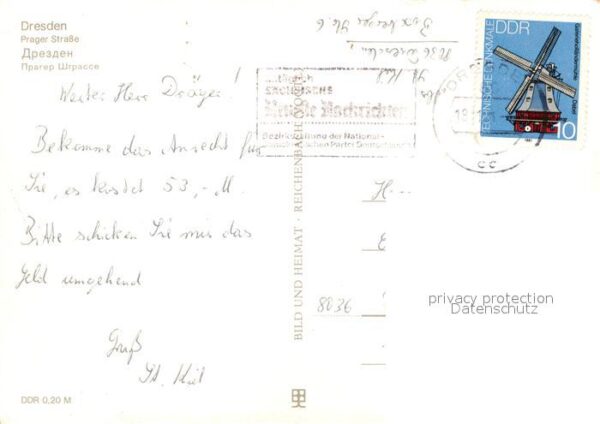 Dresden
Prager Straße
Дрезден
Прагер Штрассе
Werter Herr Dräger!
Bekomme das Anrecht für
Sie, es kostet 53,- M.
Bitte schicken Sie mir das
Geld umgehend
Gruß
St.
DDR 0,20 M
BILD UND HEIMAT · REICHENBACH (VOGTL)
8036 Dresden
täglich
SÄCHSISCHE
Neueste Nachrichten
Bezirkszeitung der National-
Demokratischen Partei Deutschlands
DRESDEN
cc
DDR
TECHNISCHE DENKMALE
10
H
8036
privacy protection
Datenschutz